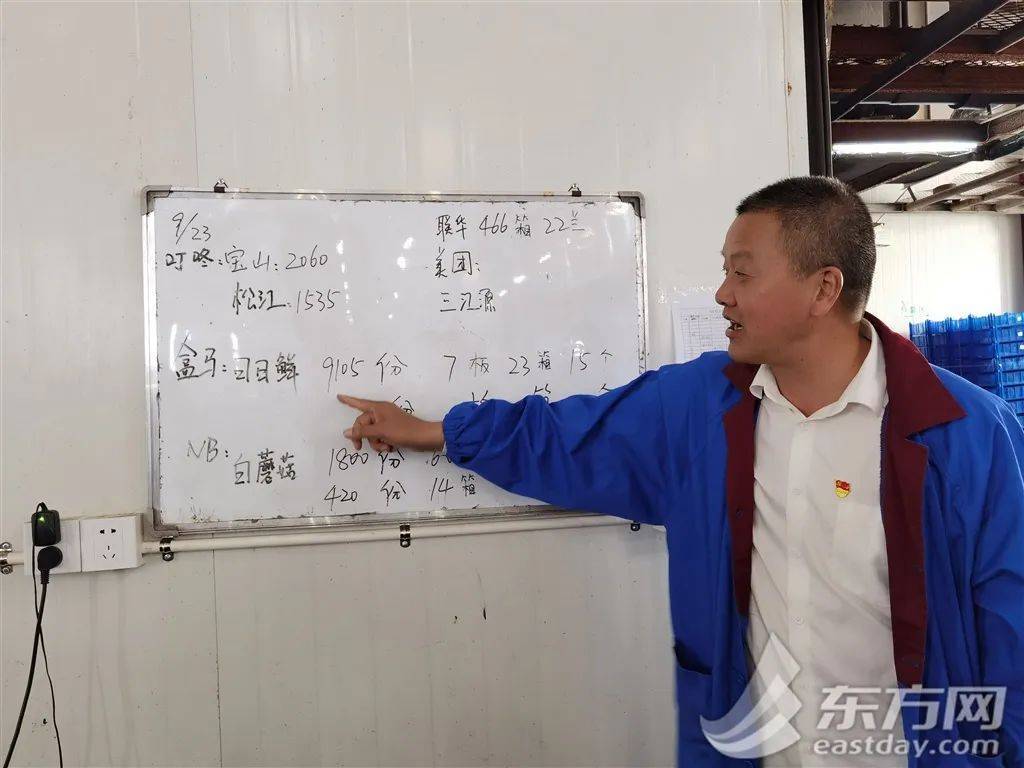 9/23
叮咚:宝山:2060
松江:1535
联华 466箱 22兰
美团:
三江源
盒马:日日鲜 9105份 7板 23箱 15个
份
NB:
白蘑菇 1800份
420份 14箱
东方网
eastday.com